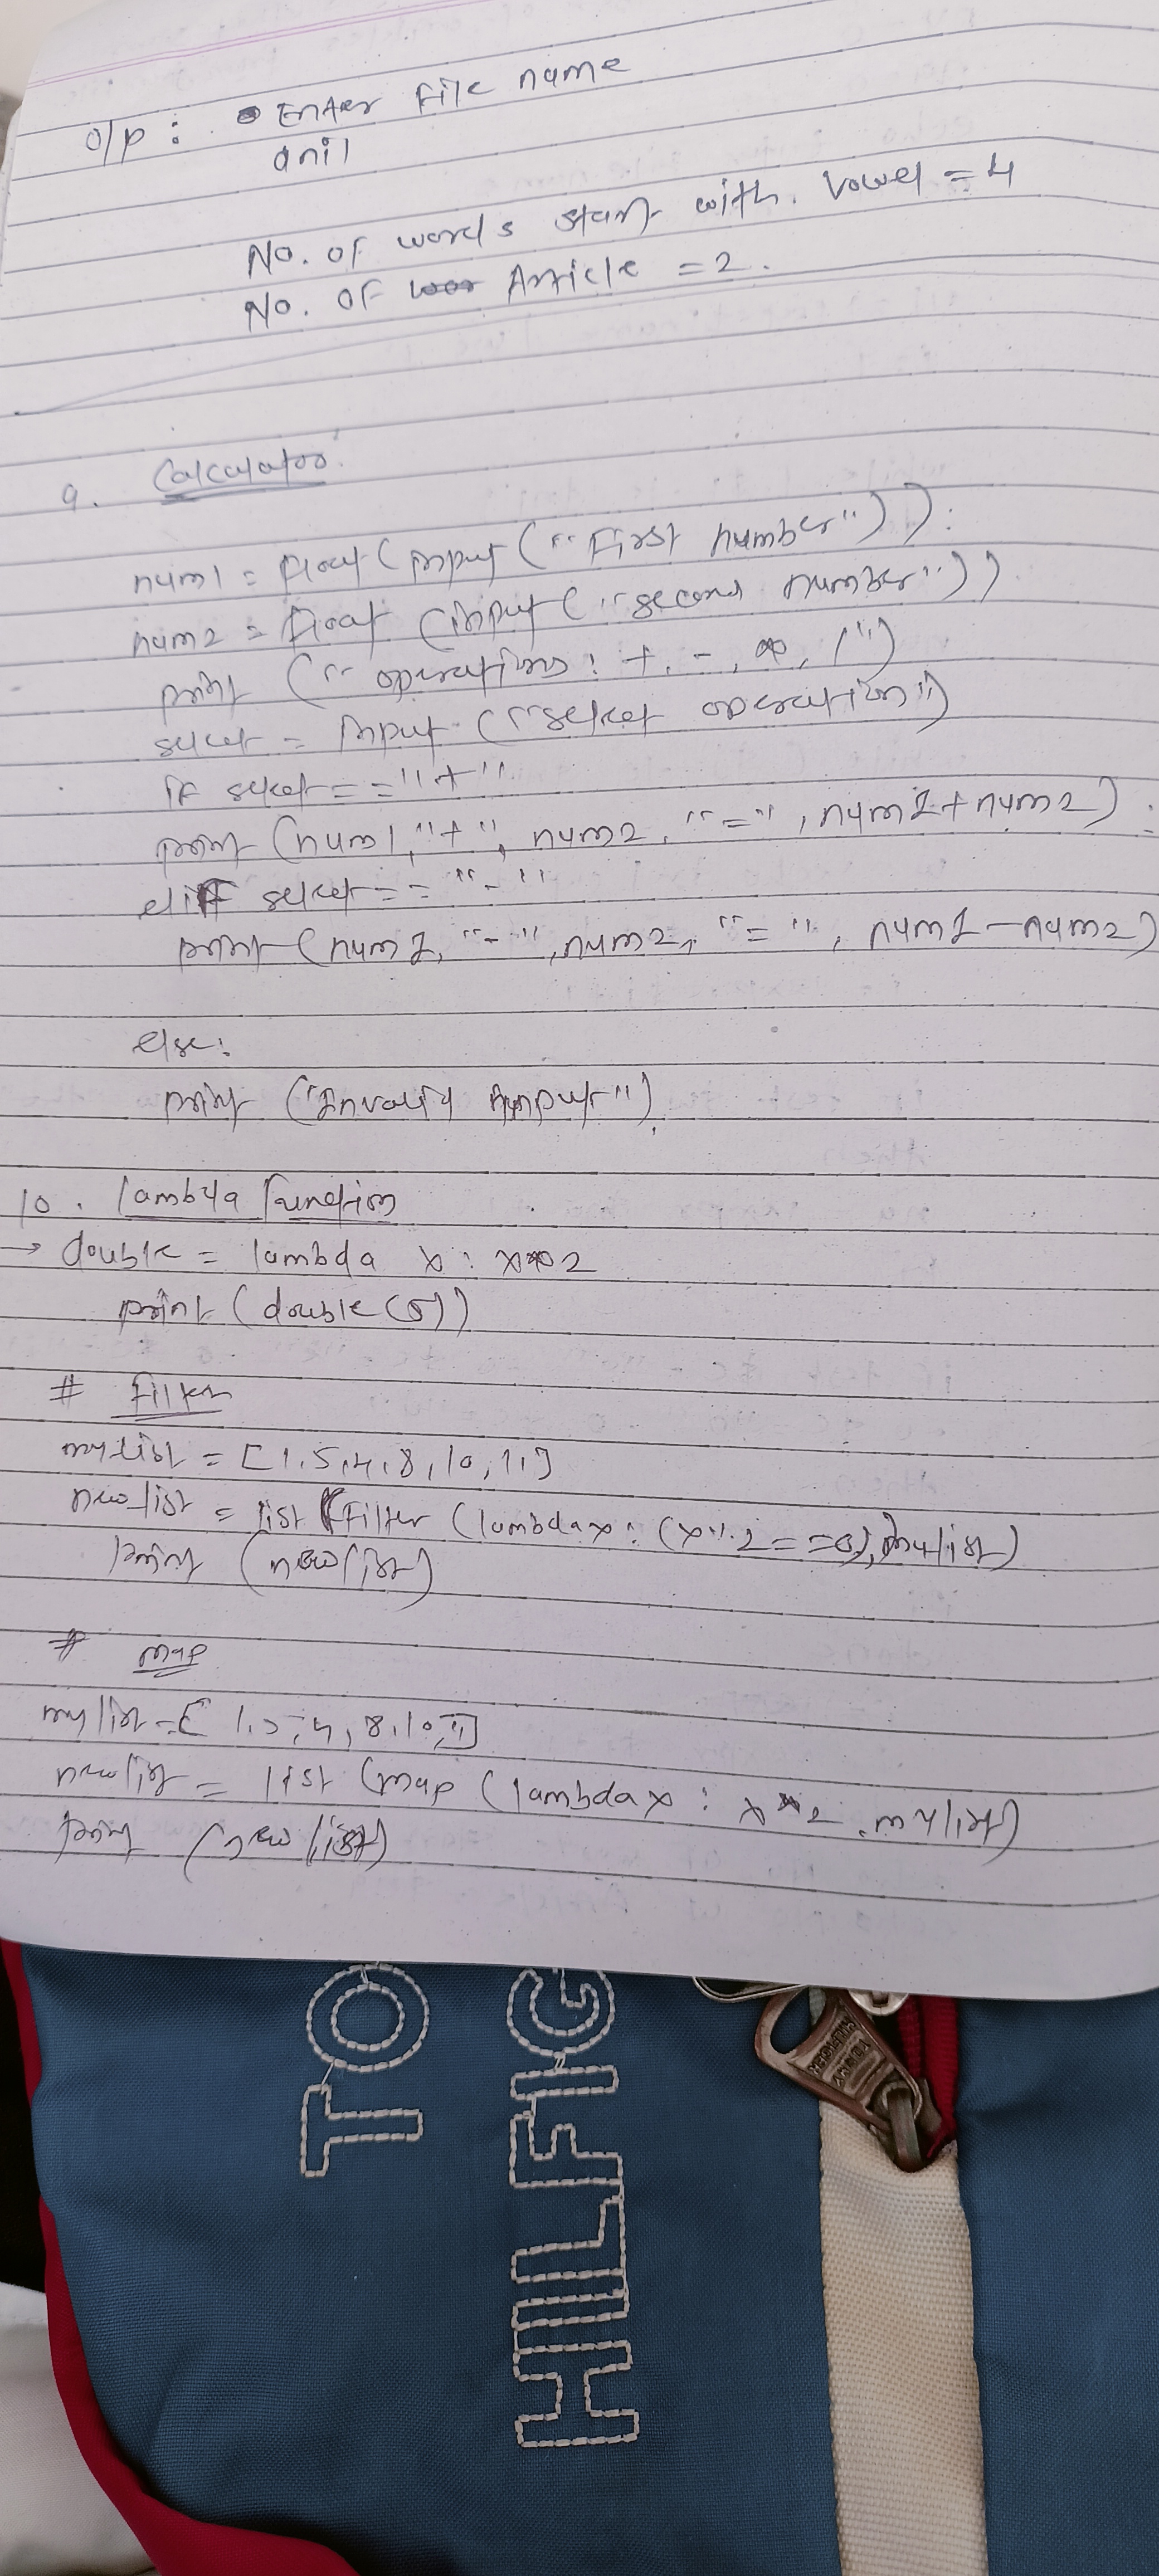 o/p : Enter File name
anil
No. of words start with. Vowel = 4
No. of Article = 2.
9. Calculator.
num1 = float (input ("First number")):
num2 = float (input ("second number"))
print ("operations: +, -, *, /")
select = Input ("select operation")
if select == "+"
print (num1, "+", num2, "=", num1+num2)
elif select == "-"
print (num1, "-", num2, "=", num1-num2)
else:
print ("Invalid input")
10. lambda function
→ double = lambda x : x**2
print (double(5))
# Filter
mylist = [1,5,4,8,10,11]
newlist = list (Filter (lambda x : (x%2==0), mylist)
print (newlist)
# map
mylist = [1,5,4,8,10,11]
newlist = list (map (lambda x : x**2, mylist)
print (newlist)
TO
HILFIG
TOMMY
HILFIGER